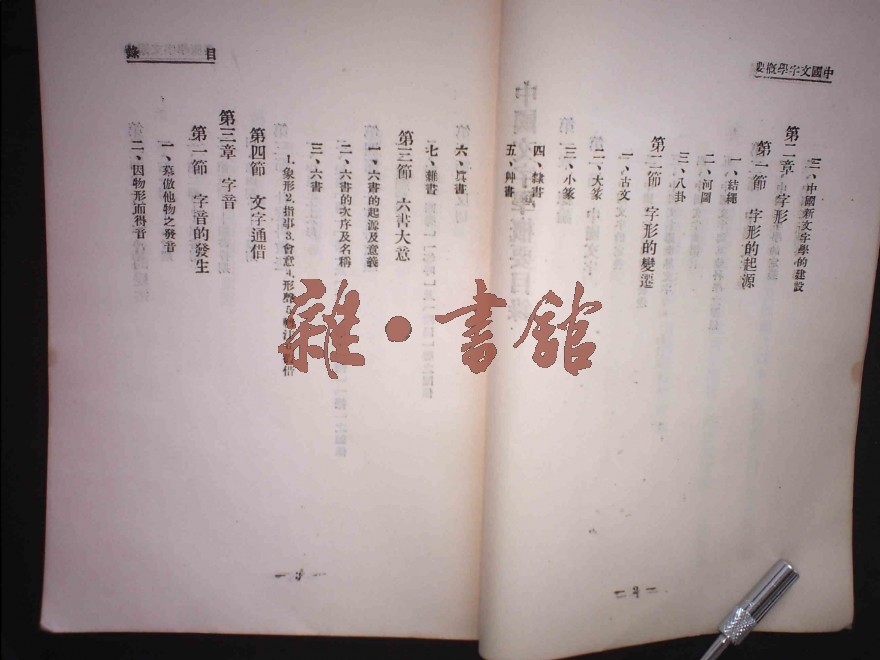 中國文字學概要
三、中國新文字學的建設
第二章 字形
第一節 字形的起源
一、結繩
二、河圖
三、八卦
第二節 字形的變遷
一、古文
二、大篆
三、小篆
四、隸書
五、艸書
— 2 —
目錄
六、眞書
七、雜書
第三節 六書大意
一、六書的起源及意義
二、六書的次序及名稱
三、六書
1.象形2.指事3.會意4.形聲5.轉注6.假借
第四節 文字通借
第三章 字音
第一節 字音的發生
一、摹倣他物之發音
二、因物形而得音
雜·書舘